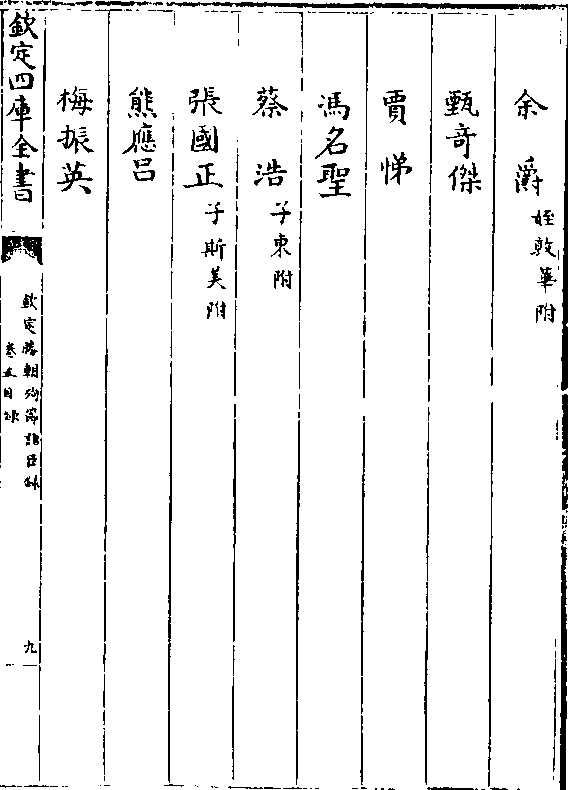 余爵姪敦華附
甄奇傑
賈悌
馮名聖
蔡浩子束附
張國正子斯美附
熊應呂
梅振英
欽定四庫全書
欽定勝朝殉節諸臣錄
卷五目錄
九